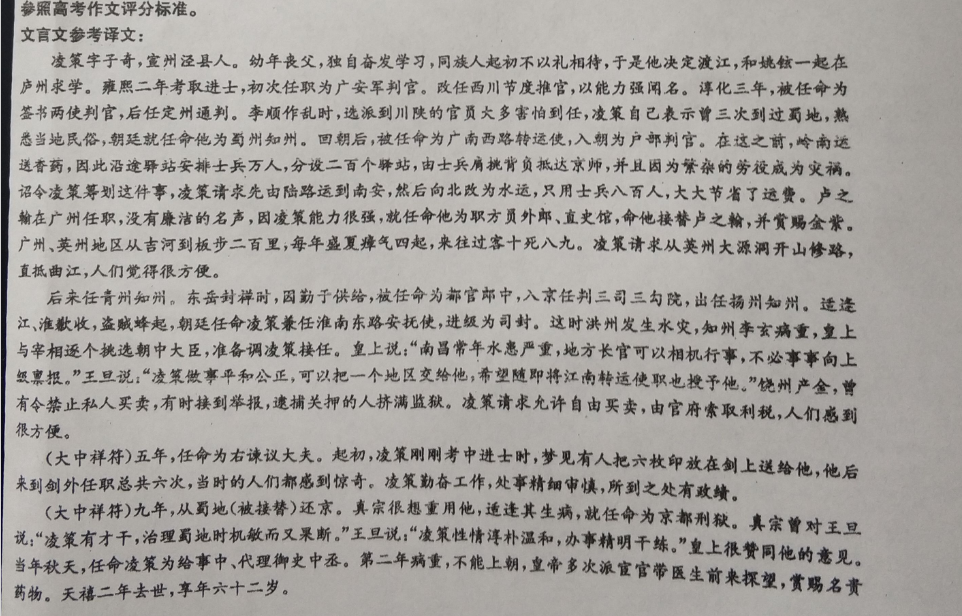 参照高考作文评分标准。
文言文参考译文：
凌策字子奇，宣州泾县人。幼年丧父，独自奋发学习，同族人起初不以礼相待，于是他决定渡江，和姚铉一起在
庐州求学。雍熙二年考取进士，初次任职为广安军判官。改任西川节度推官，以能力强闻名。淳化三年，被任命为
签书两使判官，后任定州通判。李顺作乱时，选派到川陕的官员大多害怕到任，凌策自己表示曾三次到过蜀地，熟
悉当地民俗，朝廷就任命他为蜀州知州。回朝后，被任命为广南西路转运使，入朝为户部判官。在这之前，岭南运
送香药，因此沿途驿站安排士兵万人，分设二百个驿站，由士兵肩挑背负抵达京师，并且因为繁杂的劳役成为灾祸。
诏令凌策筹划这件事，凌策请求先由陆路运到南安，然后向北改为水运，只用士兵八百人，大大节省了运费。卢之
翰在广州任职，没有廉洁的名声，因凌策能力很强，就任命他为职方员外郎、直史馆，命他接替卢之翰，并赏赐金紫。
广州、英州地区从吉河到板步二百里，每年盛夏瘴气四起，来往过客十死八九。凌策请求从英州大源洞开山修路，
直抵曲江，人们觉得很方便。
后来任青州知州。东岳封禅时，因勤于供给，被任命为都官郎中，入京任判三司三勾院，出任扬州知州。适逢
江、淮歉收，盗贼蜂起，朝廷任命凌策兼任淮南东路安抚使，进级为司封。这时洪州发生水灾，知州李玄病重，皇上
与宰相逐个挑选朝中大臣，准备调凌策接任。皇上说：“南昌常年水患严重，地方长官可以相机行事，不必事事向上
级禀报。”王旦说：“凌策做事平和公正，可以把一个地区交给他，希望随即将江南转运使职也授予他。”饶州产金，曾
有令禁止私人买卖，有时接到举报，逮捕关押的人挤满监狱。凌策请求允许自由买卖，由官府索取利税，人们感到
很方便。
（大中祥符）五年，任命为右谏议大夫。起初，凌策刚刚考中进士时，梦见有人把六枚印放在剑上送给他，他后
来到剑外任职总共六次，当时的人们都感到惊奇。凌策勤奋工作，处事精细审慎，所到之处有政绩。
（大中祥符）九年，从蜀地（被接替）还京。真宗很想重用他，适逢其生病，就任命为京都刑狱。真宗曾对王旦
说：“凌策有才干，治理蜀地时机敏而又果断。”王旦说：“凌策性情淳朴温和，办事精明干练。”皇上很赞同他的意见。
当年秋天，任命凌策为给事中、代理御史中丞。第二年病重，不能上朝，皇帝多次派宦官带医生前来探望，赏赐名贵
药物。天禧二年去世，享年六十二岁。